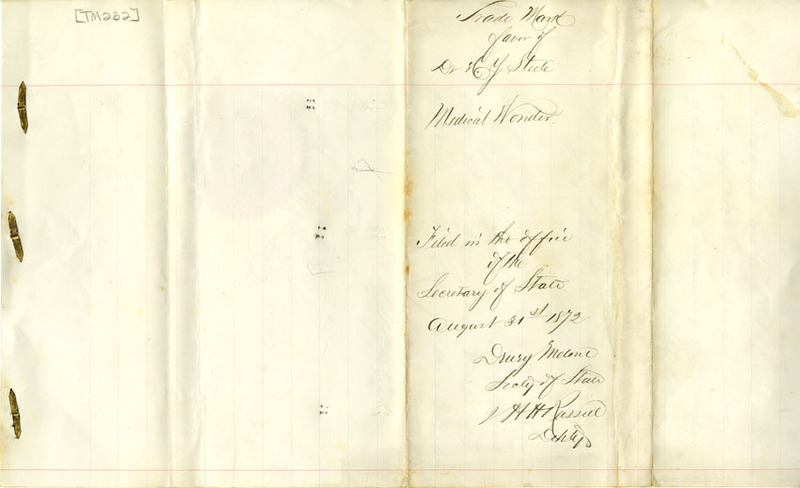 [TM232]
Trade Mark
favor of
Dr H. Y Steele
Medical Wonder.
Filed in the office
of the
Secretary of State
August 31st 1872
Drury Melone
Secty of State
H H Russell
Deputy